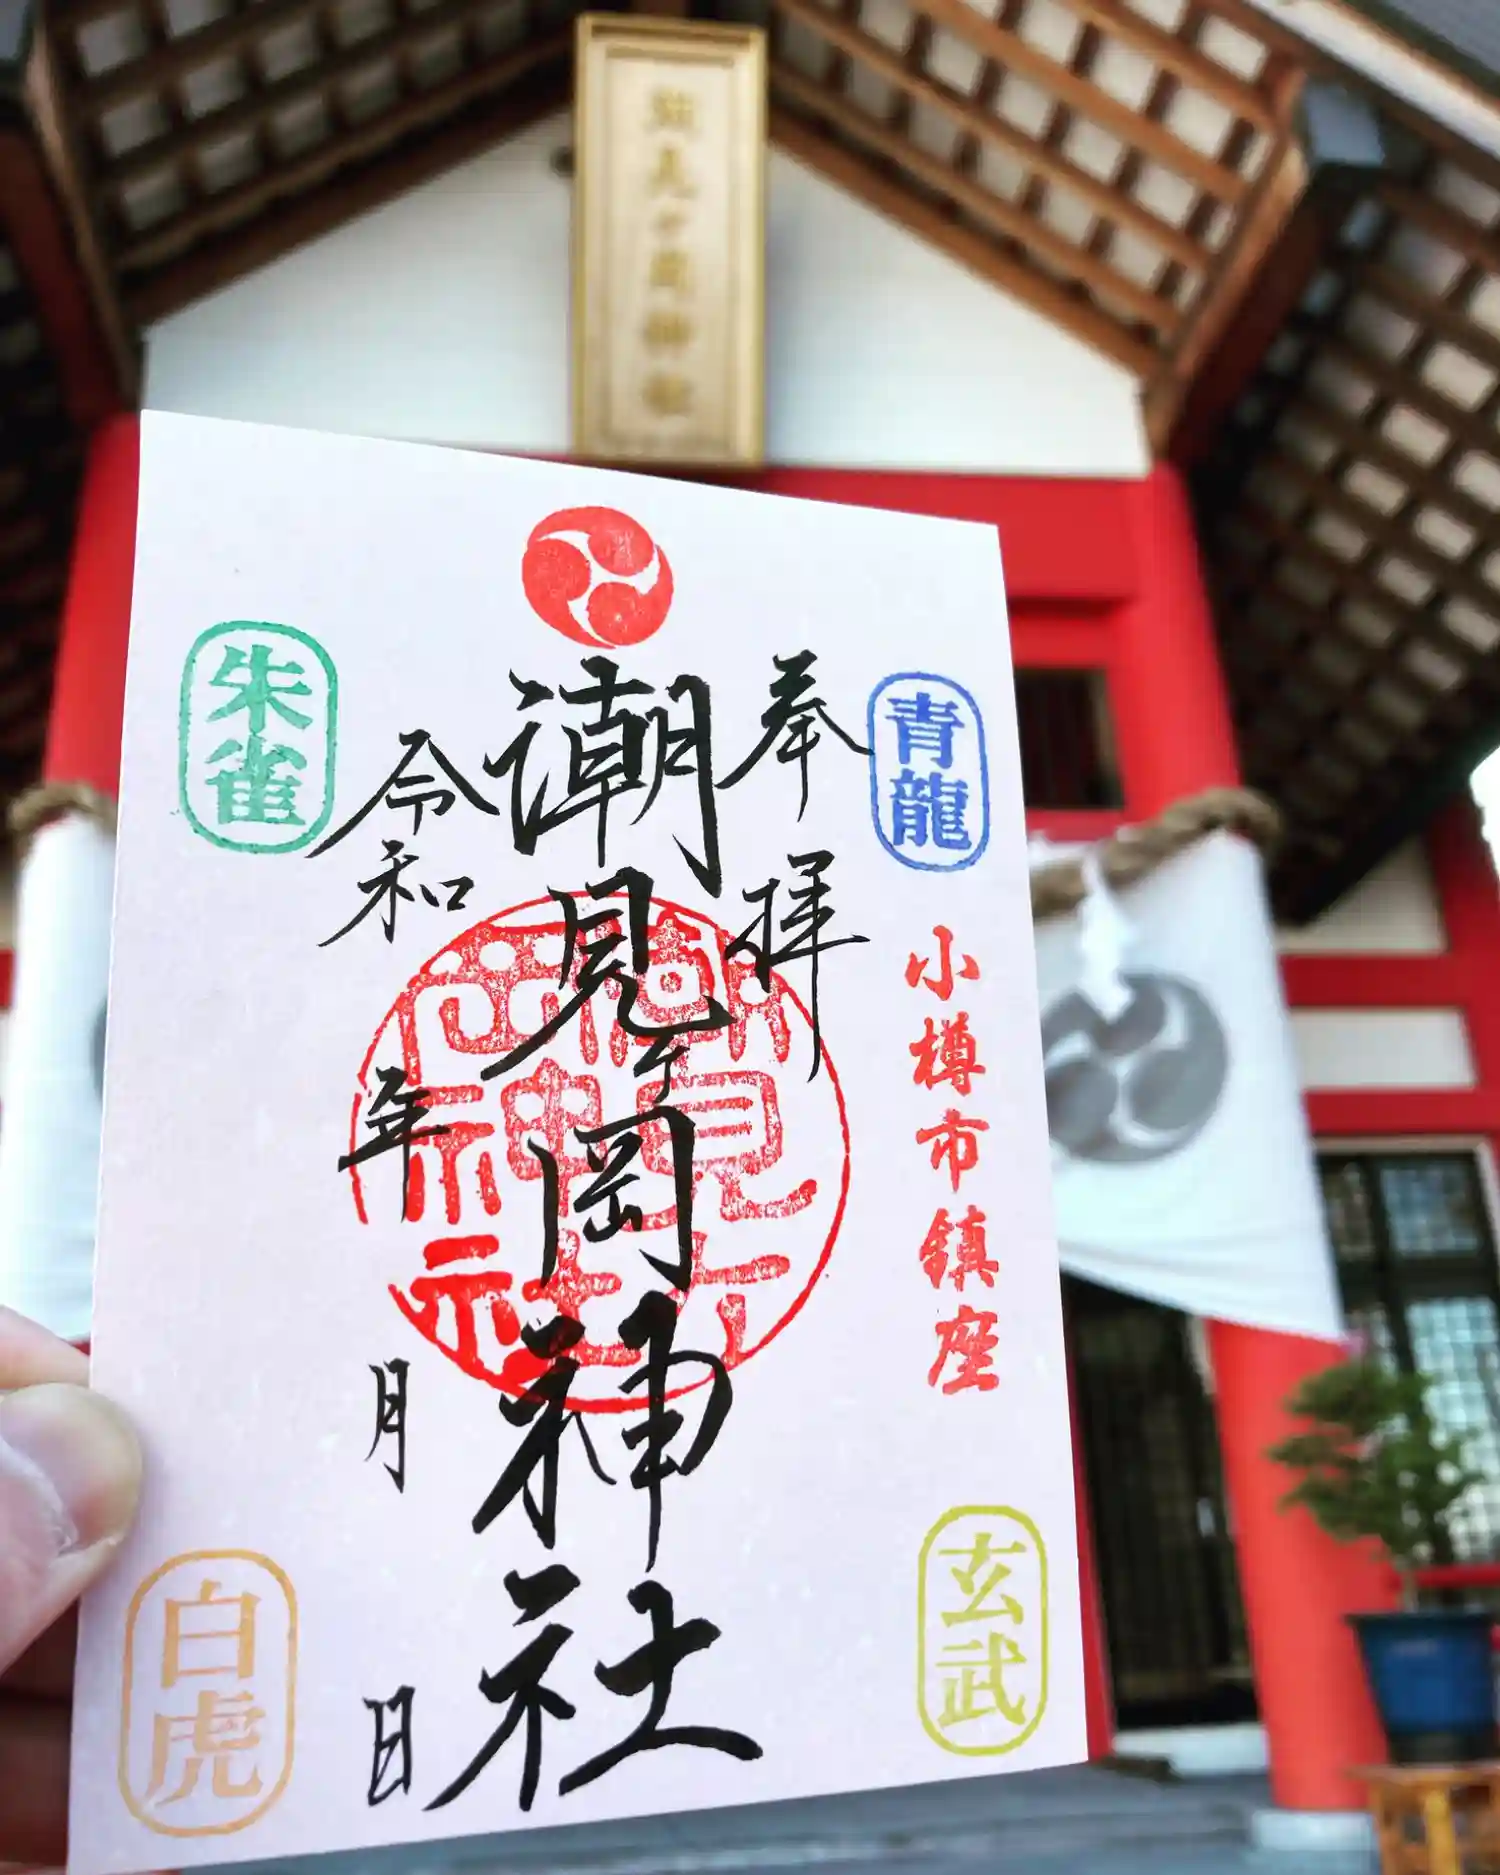 潮見ヶ岡神社
青龍
小樽市鎮座
玄武
奉拝
潮見ヶ岡神社
令和 年 月 日
朱雀
白虎